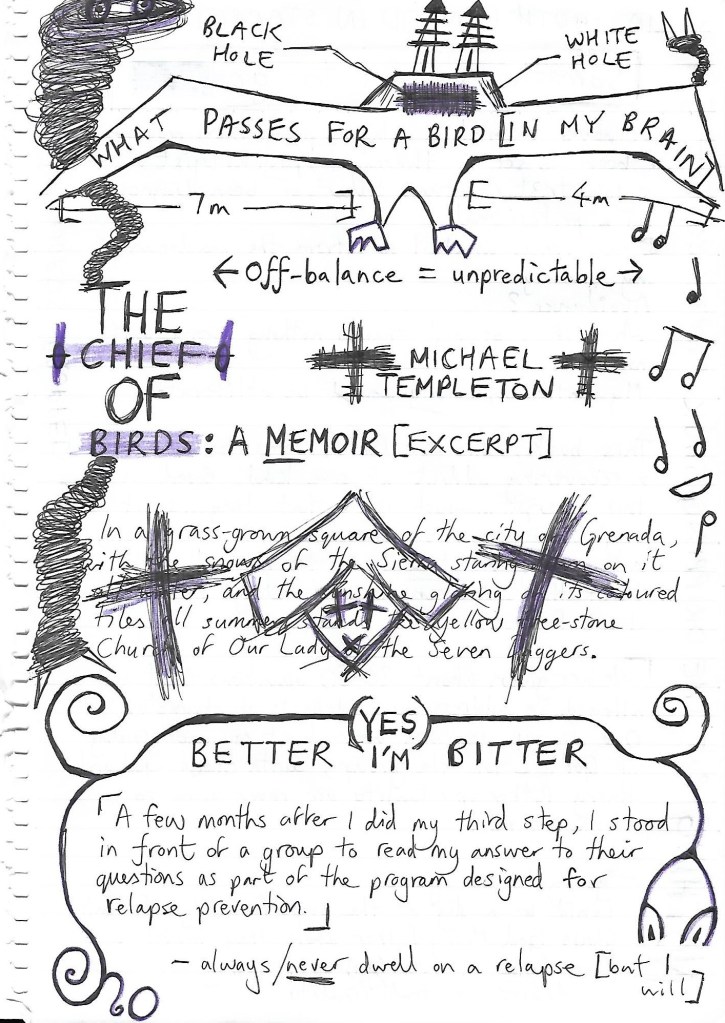 BLACK HOLE
WHITE HOLE
WHAT PASSES FOR A BIRD [IN MY BRAIN]
7m
4m
← Off-balance = unpredictable →
THE
CHIEF
OF
BIRDS: A MEMOIR [EXCERPT]
MICHAEL
TEMPLETON
In a grass-grown square of the city of Grenada,
with the snows of the Sierra staring down on it
all winter, and the sunshine glaring on its coloured
tiles all summer, stands the yellow free-stone
Church of Our Lady of the Seven Daggers.
BETTER (YES I'M) BITTER
「A few months after I did my third step, I stood
in front of a group to read my answer to their
questions as part of the program designed for
relapse prevention.」
- always/never dwell on a relapse [but I
will]